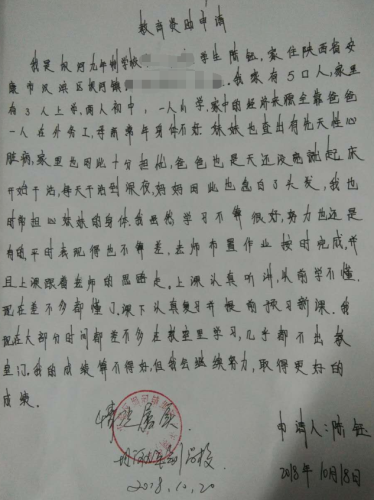 教育资助申请
我是坝河九年制学校 学生陈钰,家住陕西省安
康市汉滨区坝河镇 .我家有5口人,家里
有3人上学,两人初中,一人小学,家中的经济来源全靠爸爸
一人在外务工,身体不好 妹妹也查出有先天性心
脏病,家里也因此十分担忧,爸爸也是天还没亮就起床
开始干活,每天干活到很夜,妈妈因此也急白了头发,我也
时常担心妹妹的身体.我虽然学习不算很好,努力也还是
有的平时表现得也不算差,老师布置作业按时完成,并
且上课跟着老师的思路走,上课认真听讲,从前学不懂.
现在差不多都懂了.课下认真复习并提前预习新课.我
现在大部分时间都差不多在教室里学习,几乎都不出教
室门.我的成绩算不得好,但我会继续努力,取得更好的
成绩.
情况属实
申请人:陈钰
坝河九年制学校
2018年10月18日
2018.10.20